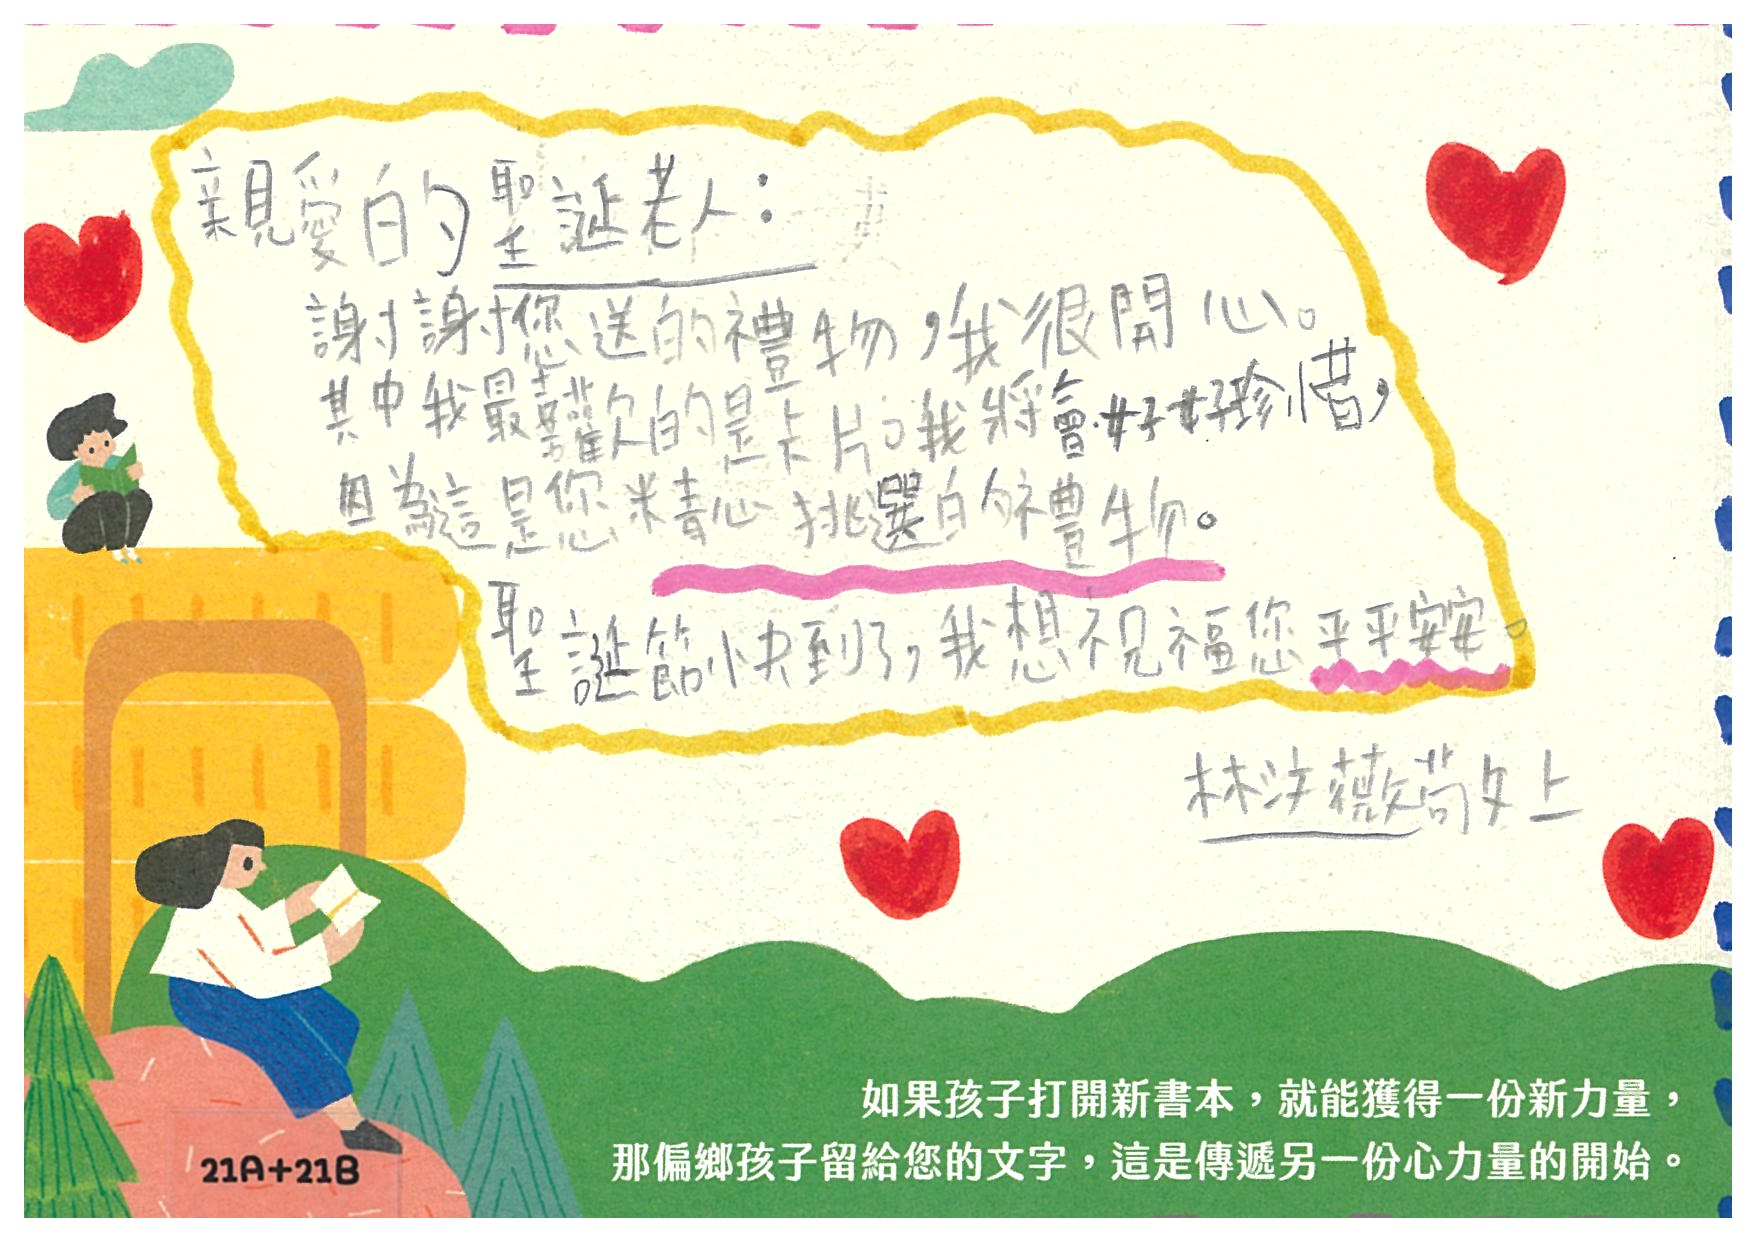 親愛的聖誕老人：
謝謝您送的禮物，我很開心。
其中我最喜歡的是卡片。我將會好好珍惜，
因為這是您精心挑選的禮物。
聖誕節快到了，我想祝福您平平安安。
林汝薇敬上
如果孩子打開新書本，就能獲得一份新力量，
那偏鄉孩子留給您的文字，這是傳遞另一份心力量的開始。
21A+21B